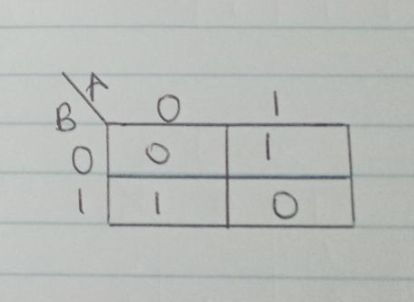 A
B 0 1
0 0 1
1 1 0